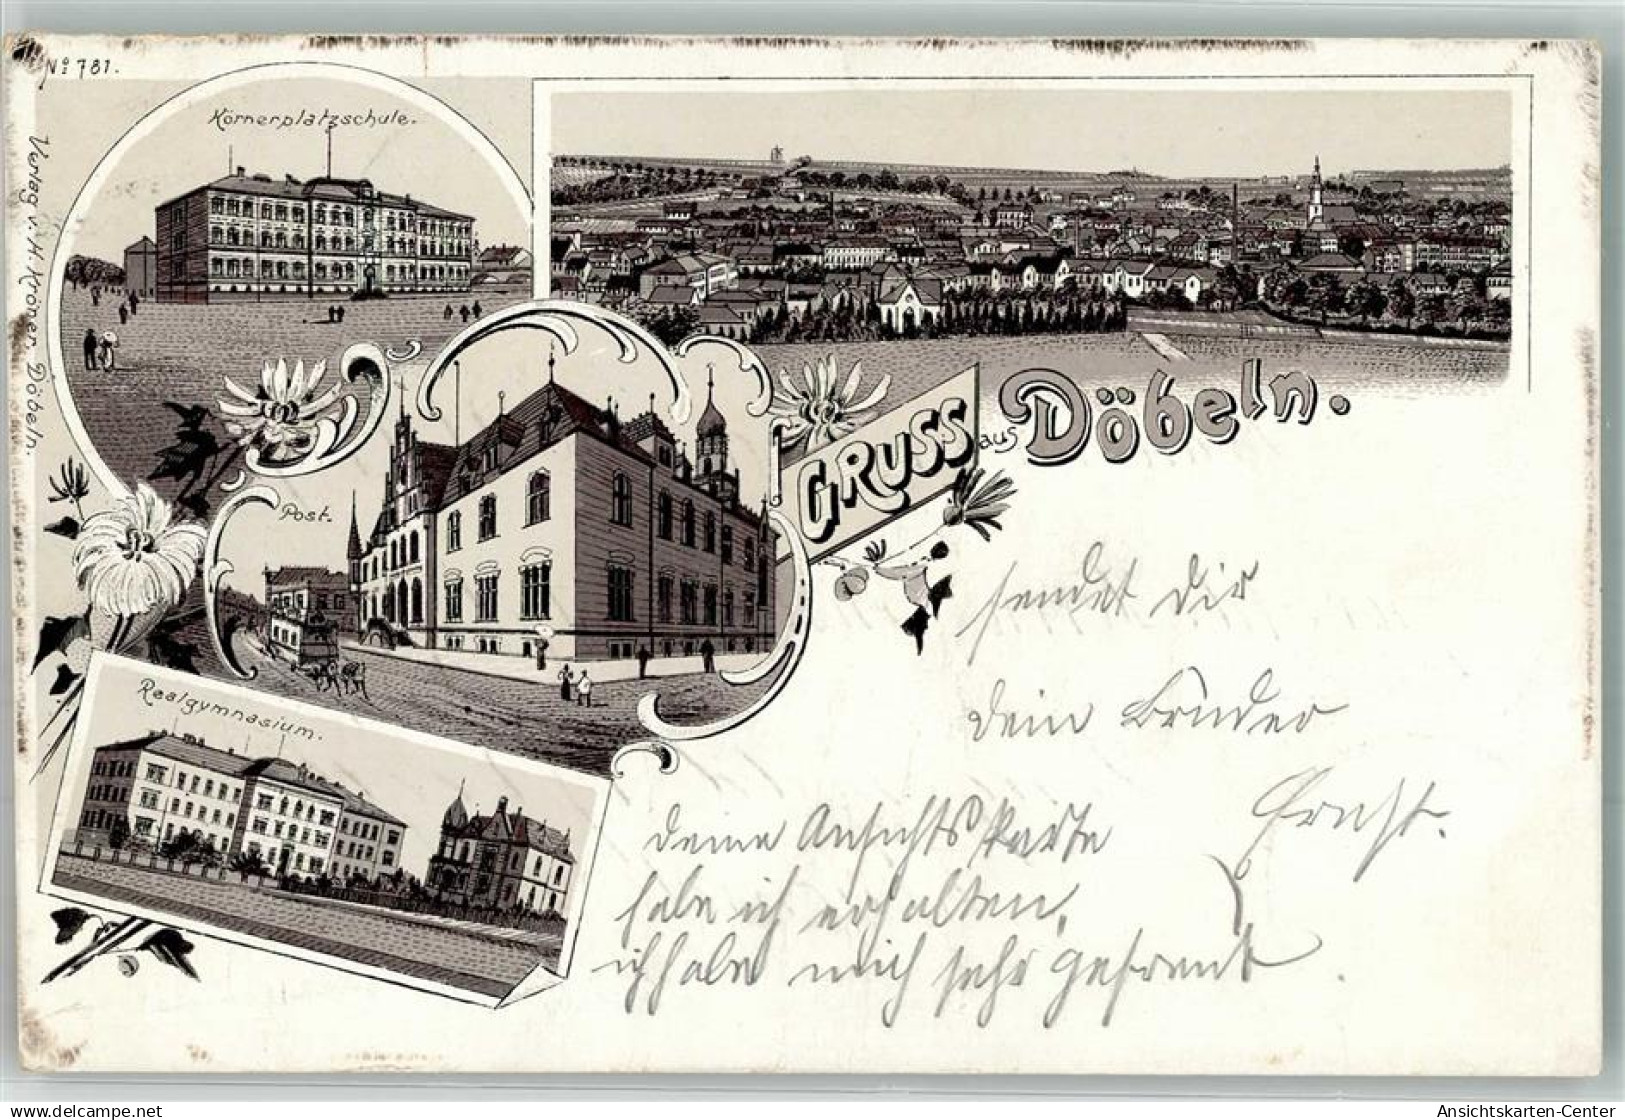 No 781.
Verlag v. H. Kröner, Döbeln.
Körnerplatzschule.
Post.
Realgymnasium.
GRUSS aus Döbeln.
sendet Dir
dein Bruder
Ernst.
deine Ansichtskarte
habe ich erhalten,
ich habe mich sehr gefreut.
www.delcampe.net/ruthmann
Ansichtskarten-Center